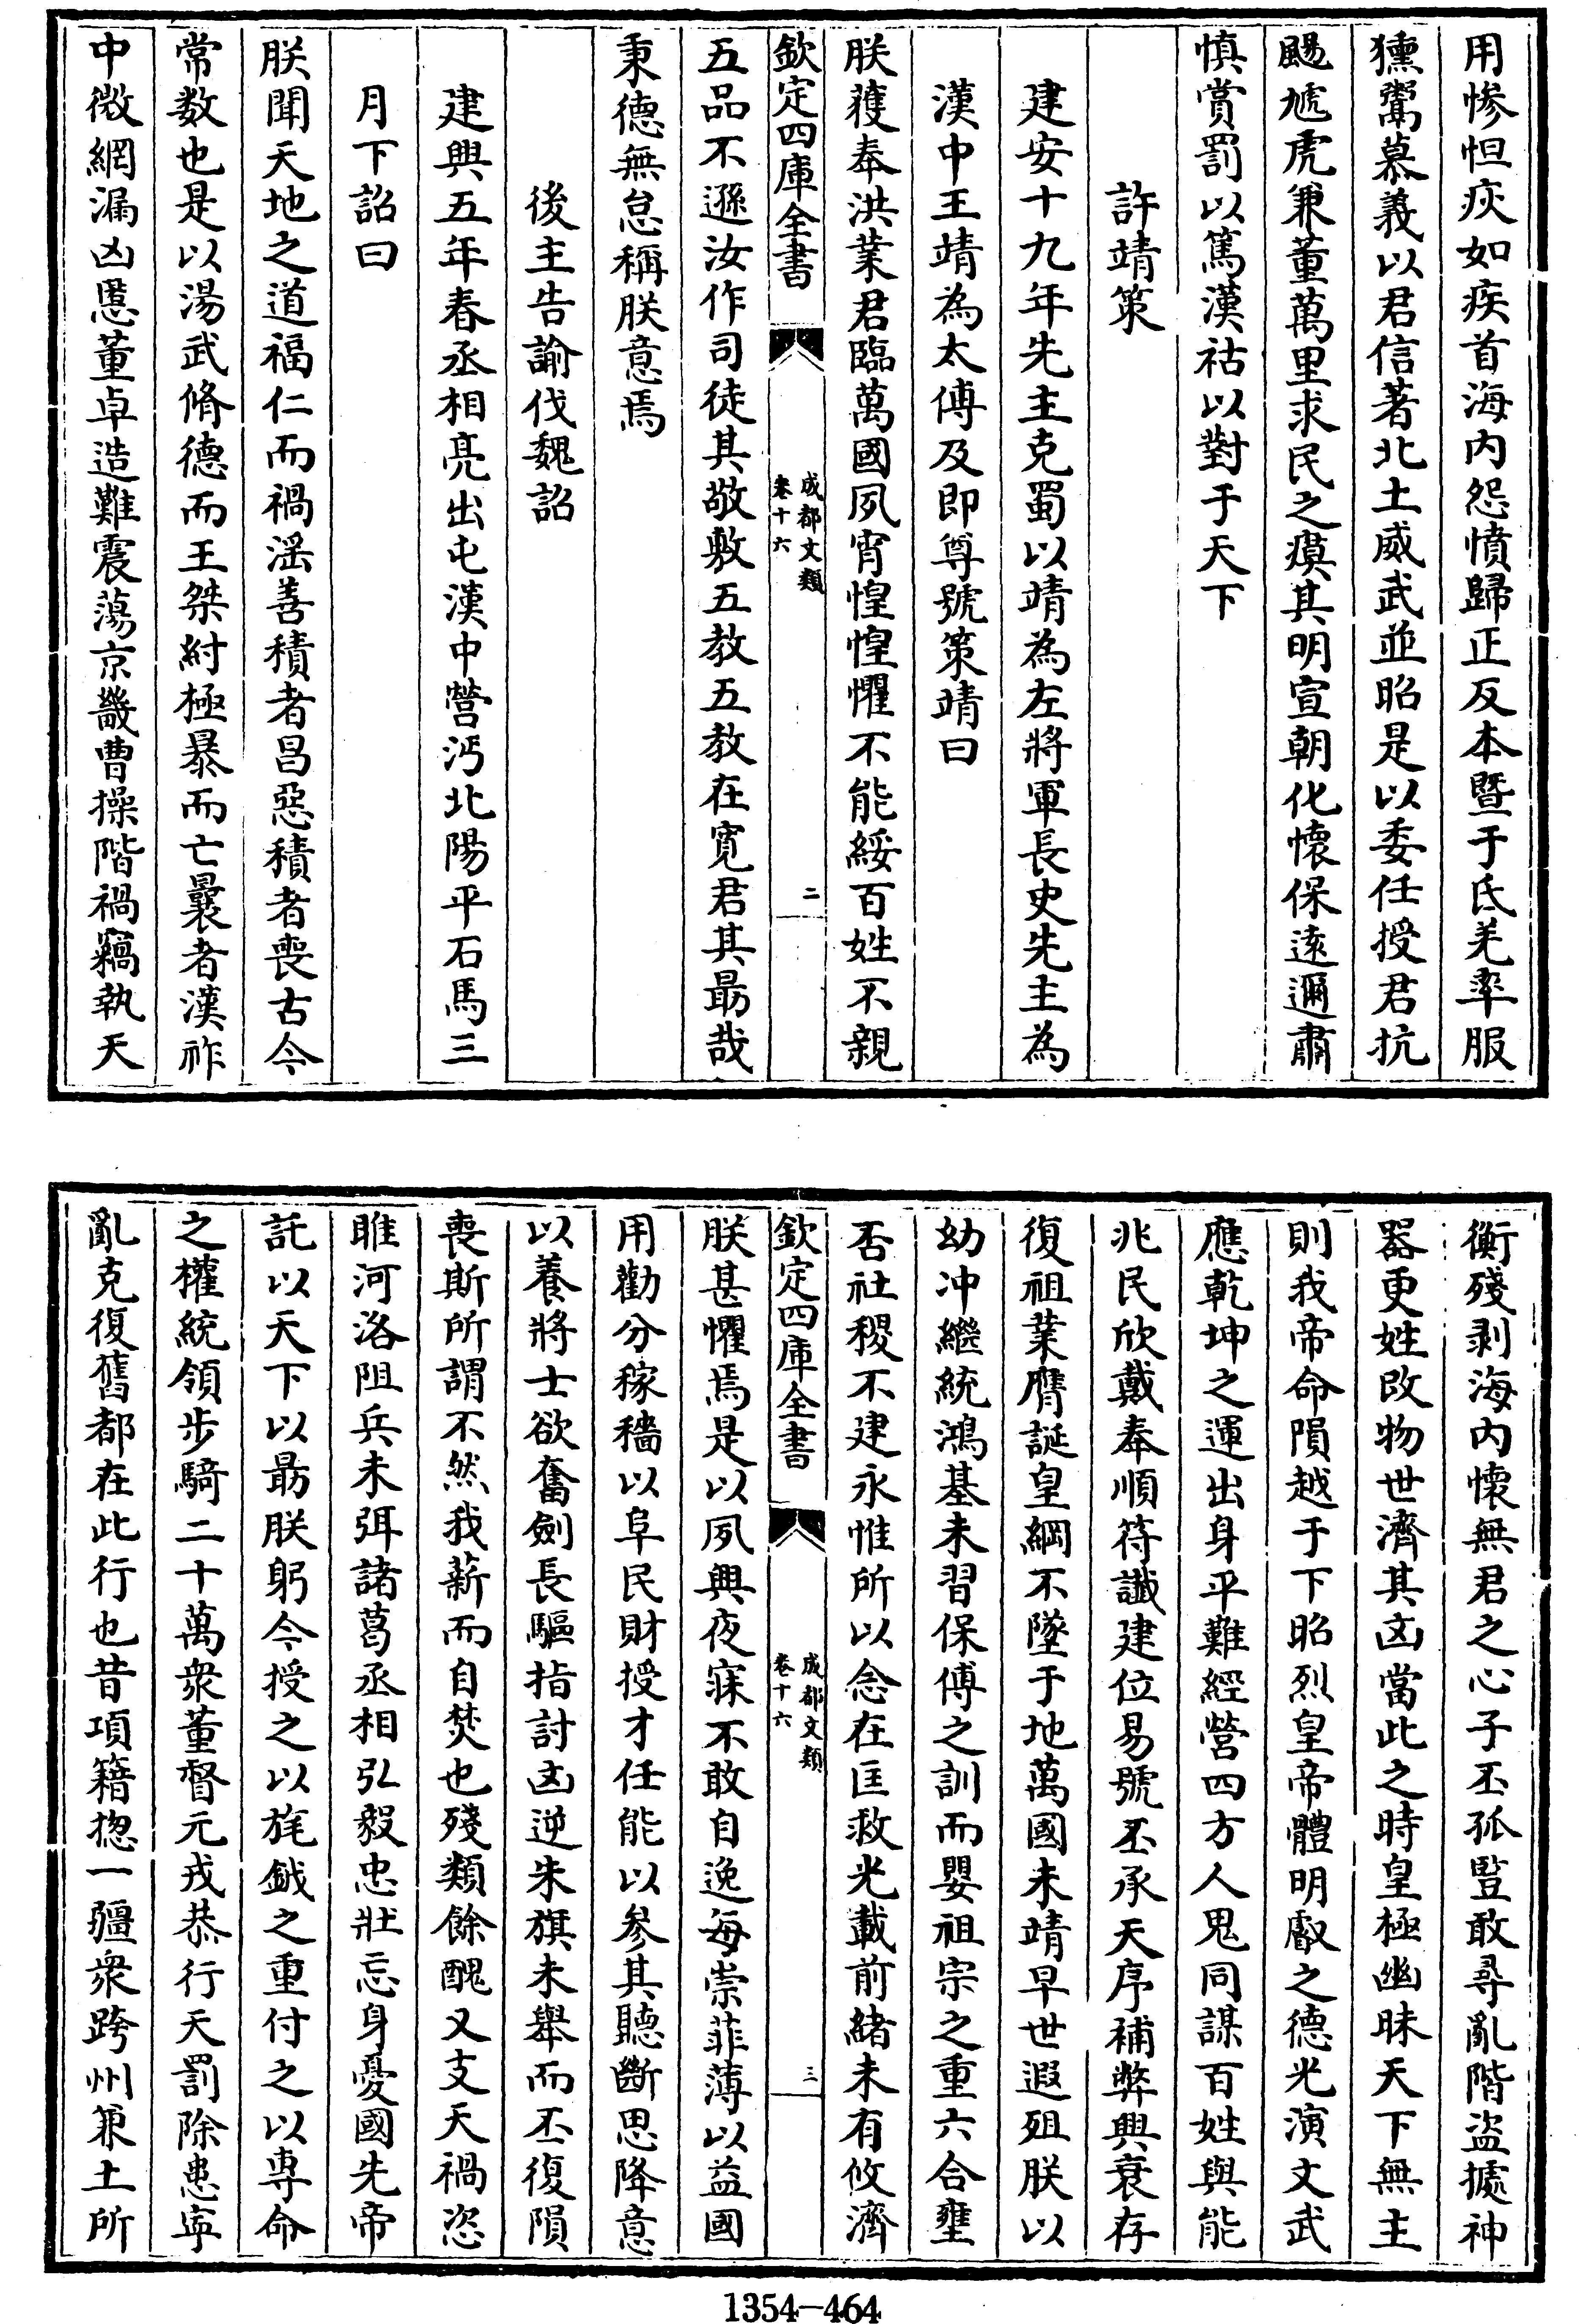 用慘怛疢如疾首海内怨憤歸正反本暨于氐羌率服
獯鬻慕義以君信著北土威武並昭是以委任授君抗
颺虓虎兼董萬里求民之瘼其明宣朝化懷保逺邇肅
慎賞罰以篤漢祜以對于天下
許靖策
建安十九年先主克蜀以靖為左將軍長史先主為
漢中王靖為太傅及即尊號策靖曰
朕䕶奉洪業君臨萬國夙宵惶惶懼不能綏百姓不親
欽定四庫全書
成都文類
卷十六
二
五品不遜汝作司徒其敬敷五教五教在寛君其朂哉
秉德無怠稱朕意焉
後主告諭伐魏詔
建興五年春丞相亮出屯漢中營沔北陽平石馬三
月下詔曰
朕聞天地之道福仁而禍滛善積者昌惡積者喪古今
常数也是以湯武脩德而王桀紂極暴而亡曩者漢祚
中微網漏凶慝董卓造難震蕩京畿曹操階禍竊執天
衡殘剥海内懷無君之心子丕孤豎敢尋亂階盗據神
器更姓改物世濟其凶當此之時皇極幽昧天下無主
則我帝命隕越于下昭烈皇帝體明叡之德光演文武
應乾坤之運出身平難經營四方人鬼同謀百姓與能
兆民欣戴奉順符䜟建位易號丕承天序補弊興衰存
復祖業膺誕皇綱不墜于地萬國未靖早世遐殂朕以
幼冲繼統鴻基未習保傅之訓而嬰祖宗之重六合壅
否社稷不建永惟所以念在匡救光載前緒未有攸濟
欽定四庫全書
成都文類
卷十六
三
朕甚懼焉是以夙興夜寐不敢自逸每崇菲薄以益國
用勸分稼穡以阜民財授才任能以參其聽斷思降意
以養將士欲奮劍長驅指討凶逆朱旗未舉而丕復隕
喪斯所謂不然我薪而自焚也殘類餘醜又支天禍恣
睢河洛阻兵未弭諸葛丞相弘毅忠壯忘身憂國先帝
託以天下以朂朕躬今授之以旄鉞之重付之以專命
之權統領步騎二十萬衆董督元戎恭行天罰除患寧
亂克復舊都在此行也昔項籍揔一彊衆跨州兼土所
1354-464